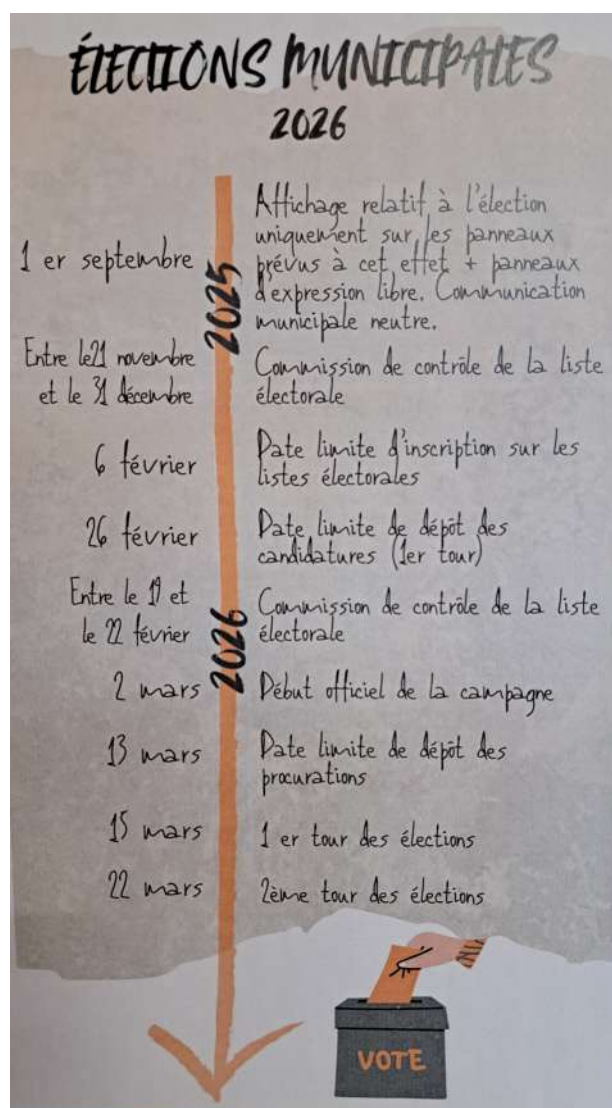 ÉLECTIONS MUNICIPALES
2026
2025
1 er septembre
Affichage relatif à l'élection
uniquement sur les panneaux
prévus à cet effet + panneaux
d'expression libre. Communication
municipale neutre.
Entre le21 novembre
et le 31 décembre
Commission de contrôle de la liste
électorale
6 février
Date limite d'inscription sur les
listes électorales
26 février
Date limite de dépôt des
candidatures (1er tour)
2026
Entre le 19 et
le 22 février
Commission de contrôle de la liste
électorale
2 mars
Début officiel de la campagne
13 mars
Date limite de dépôt des
procurations
15 mars
1 er tour des élections
22 mars
2ème tour des élections
VOTE